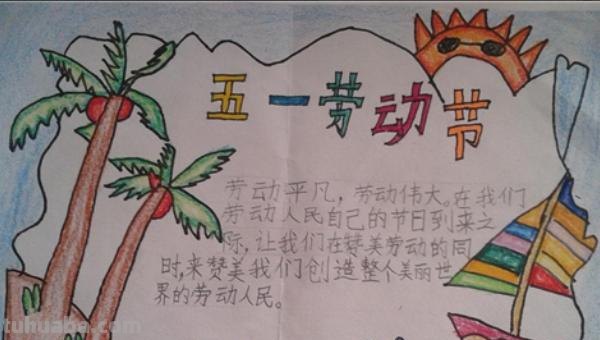 五一劳动节
劳动平凡，劳动伟大。在我们
劳动人民自己的节日到来之
际，让我们在赞美劳动的同
时，来赞美我们创造整个美丽世
界的劳动人民。
tuhuaba.com